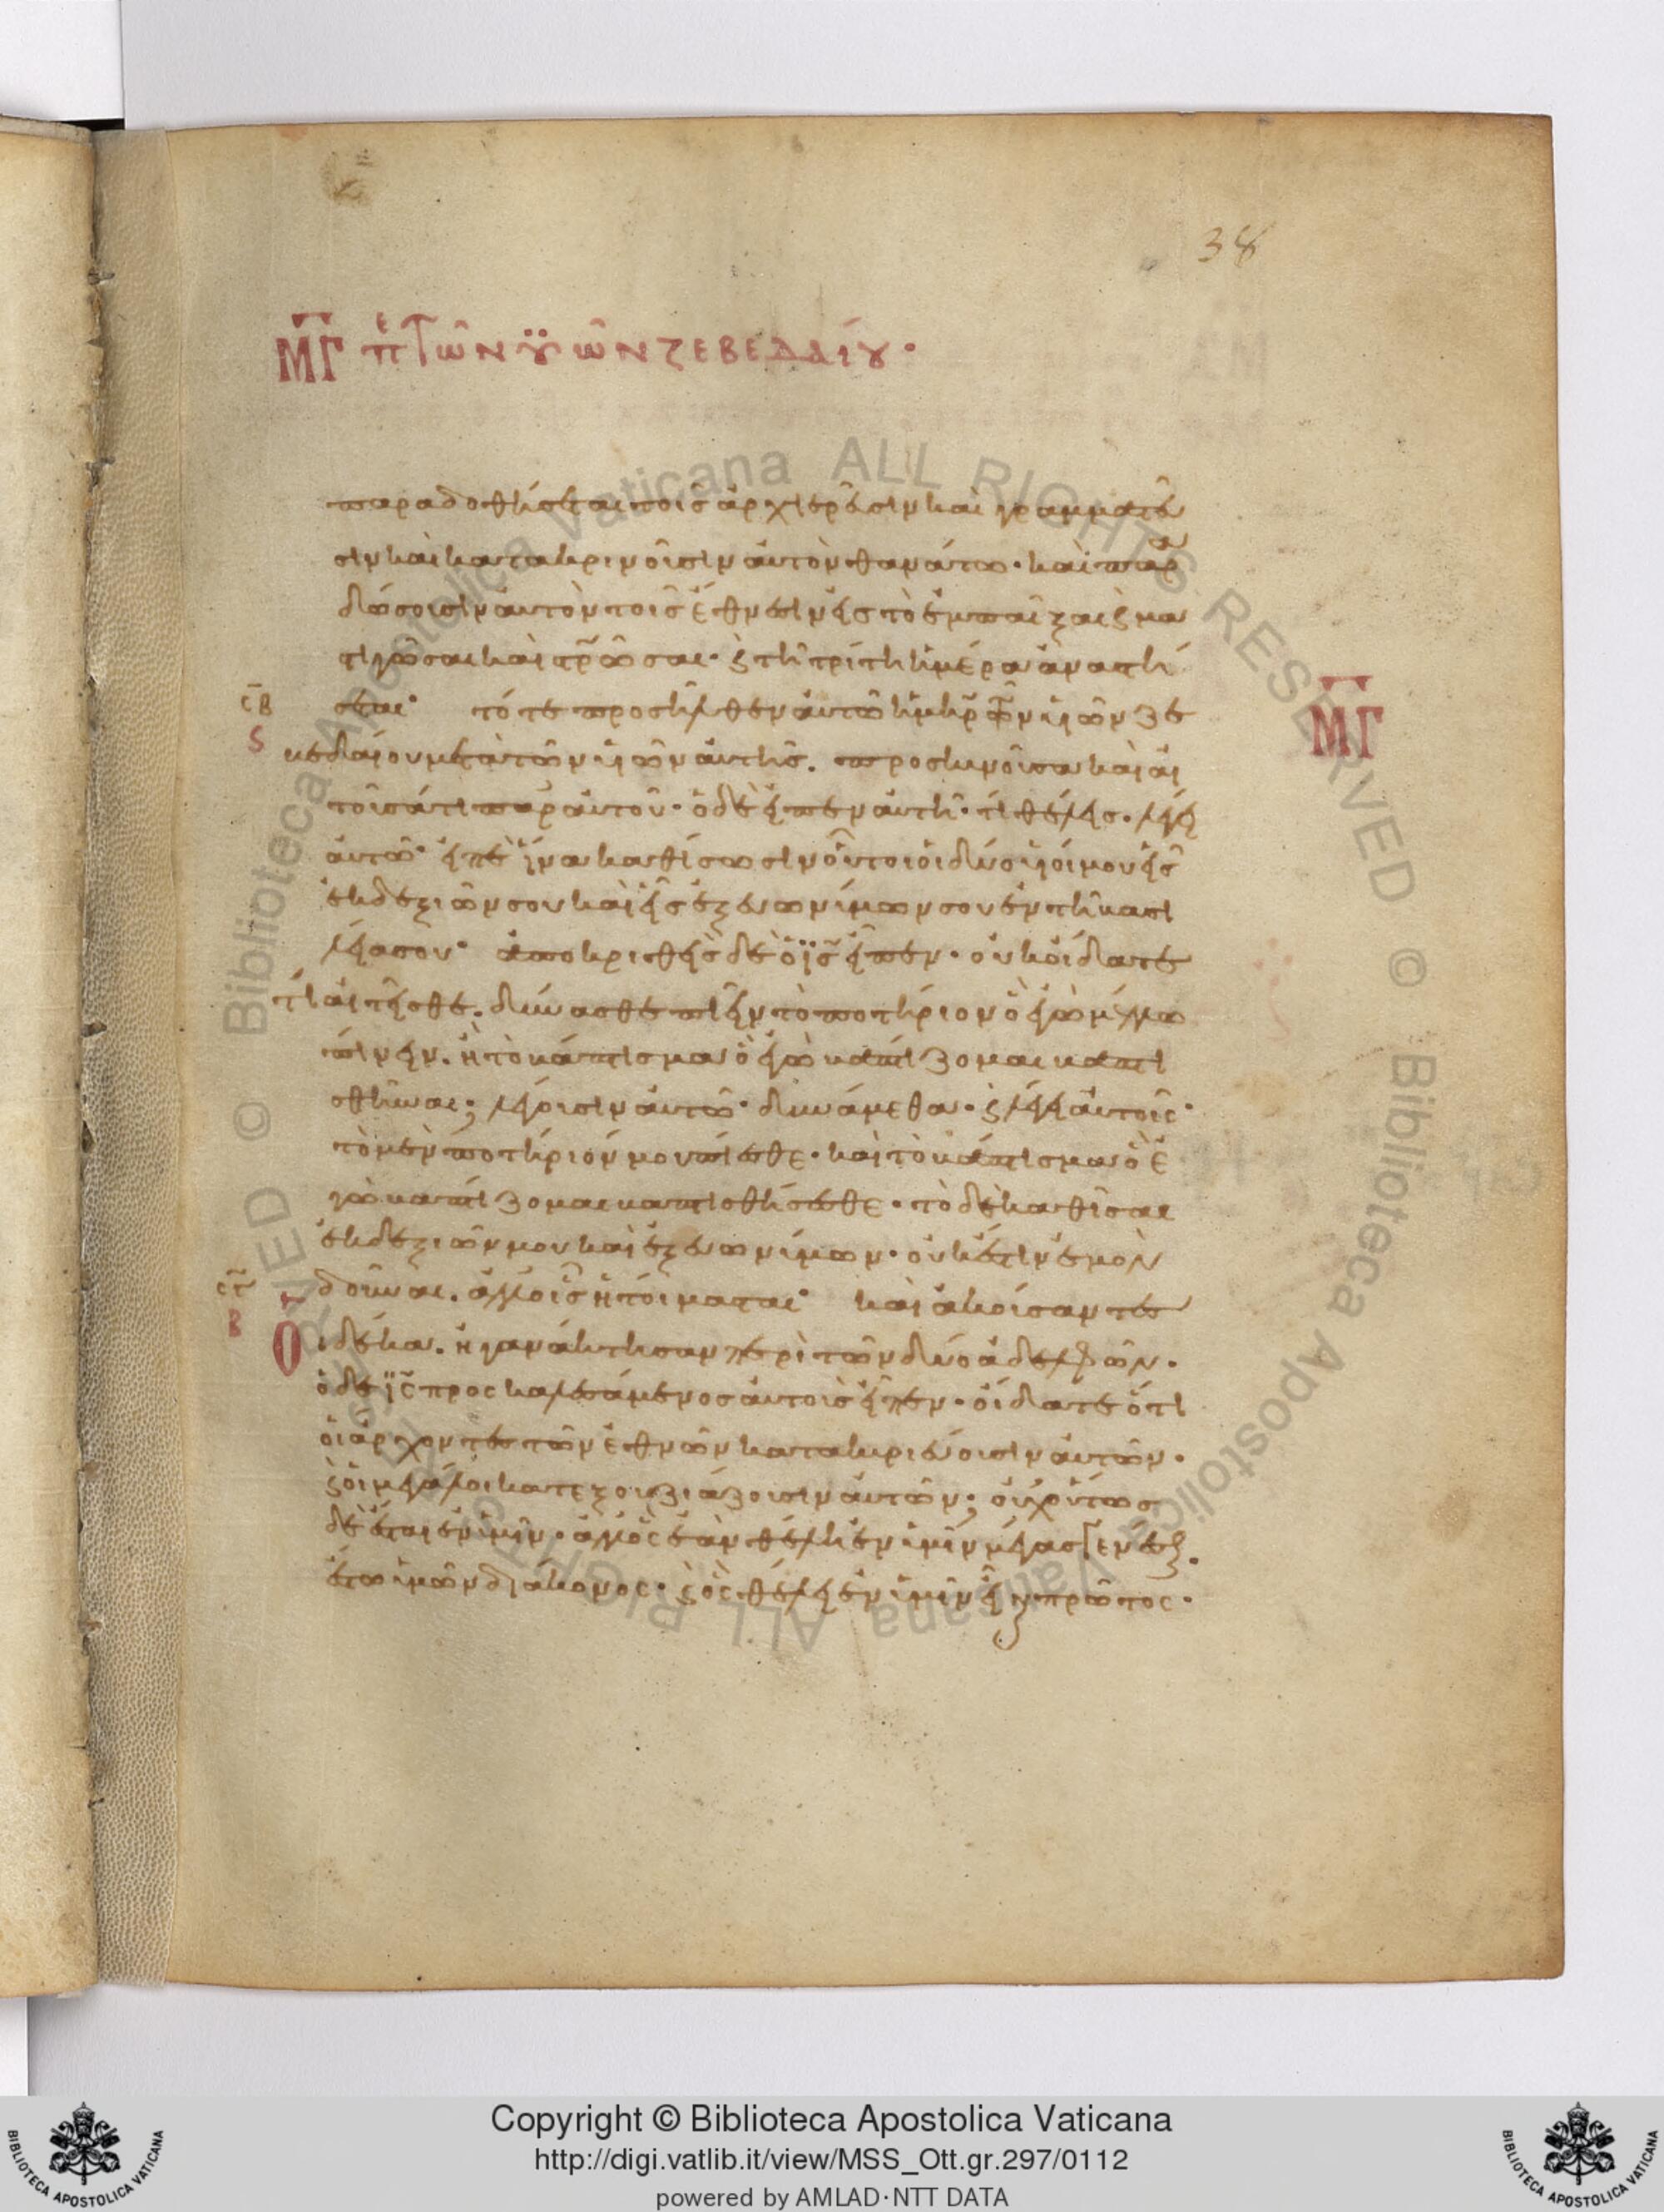 38
ΜΓ πε Τῶν υἱῶν Ζεβεδαίου·
παραδοθήσεται τοῖς ἀρχιερεῦσιν καὶ γραμματεῦ
σιν καὶ κατακρινοῦσιν αὐτὸν θανάτω· καὶ παρα
δώσουσιν αὐτὸν τοῖς ἔθνεσιν εἰς τὸ ἐμπαῖξαι ϗ μα
στιγῶσαι καὶ στρῶσαι· ϗ τῆ τρίτη ἡμέρα ἀναστή
σεται· τότε προσῆλθεν αὐτῶ ἡ μηρ τῶν υἱῶν Ζε
βεδαίου μετὰ τῶν υἱῶν αὐτῆς. προσκυνοῦσα καὶ αἰ
τοῦσά τι παρ αὐτοῦ· ὁ δὲ εἶπεν αὐτῆ· τί θέλεις. λέγει
αὐτῶ· εἰπὲ ἵνα καθίσωσιν οὗτοι οἱ δύο υἱοί μου εἷς
ἐκ δεξιῶν σου καὶ εἷς ἐξ εὐωνύμων σου ἐν τῆ βασι
λεία σου· ἀποκριθεὶς δὲ ὁ ις εἶπεν· οὐκ οἴδατε
τί αἰτεῖσθε. δύνασθε πιεῖν τὸ ποτήριον ὃ ἐγὼ μέλλω
πίνειν. ἢ τὸ βάπτισμα ὃ ἐγὼ βαπτίζομαι βαπτι
σθῆναι; λέγουσιν αὐτῶ· δυνάμεθα· ϗ λέγει αὐτοῖς·
τὸ μὲν ποτήριόν μου πίεσθε· καὶ τὸ βάπτισμα ὃ ἐ
γὼ βαπτίζομαι βαπτισθήσεσθε· τὸ δὲ καθίσαι
ἐκ δεξιῶν μου καὶ ἐξ εὐωνύμων· οὐκ ἔστιν ἐμὸν
δοῦναι. ἀλλ οἷς ἡτοίμασται· καὶ ἀκούσαντες
Οἱ δέκα. ἠγανάκτησαν περὶ τῶν δύο ἀδελφῶν.
ὁ δὲ ις προσκαλεσάμενος αὐτοὺς εἶπεν· οἴδατε ὅτι
οἱ ἄρχοντες τῶν ἐθνῶν κατακυριεύουσιν αὐτῶν.
ϗ οἱ μεγάλοι κατεξουσιάζουσιν αὐτῶν; οὐχ οὕτως
δὲ ἔσται ἐν ὑμῖν· ἀλλ ὃς ἐὰν θέλη ἐν ὑμῖν μέγας γενέσθαι.
ἔστω ὑμῶν διάκονος· ϗ ὃς θέλει ἐν ὑμῖν εἶναι πρῶτος·
ΜΓ
Copyright © Biblioteca Apostolica Vaticana
http://digi.vatlib.it/view/MSS_Ott.gr.297/0112
powered by AMLAD·NTT DATA